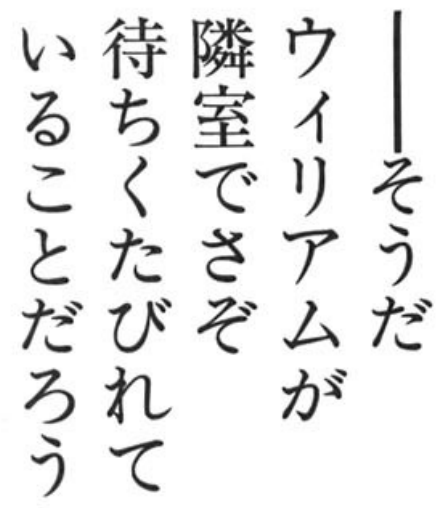 ――そうだ
ウィリアムが
隣室でさぞ
待ちくたびれて
いることだろう